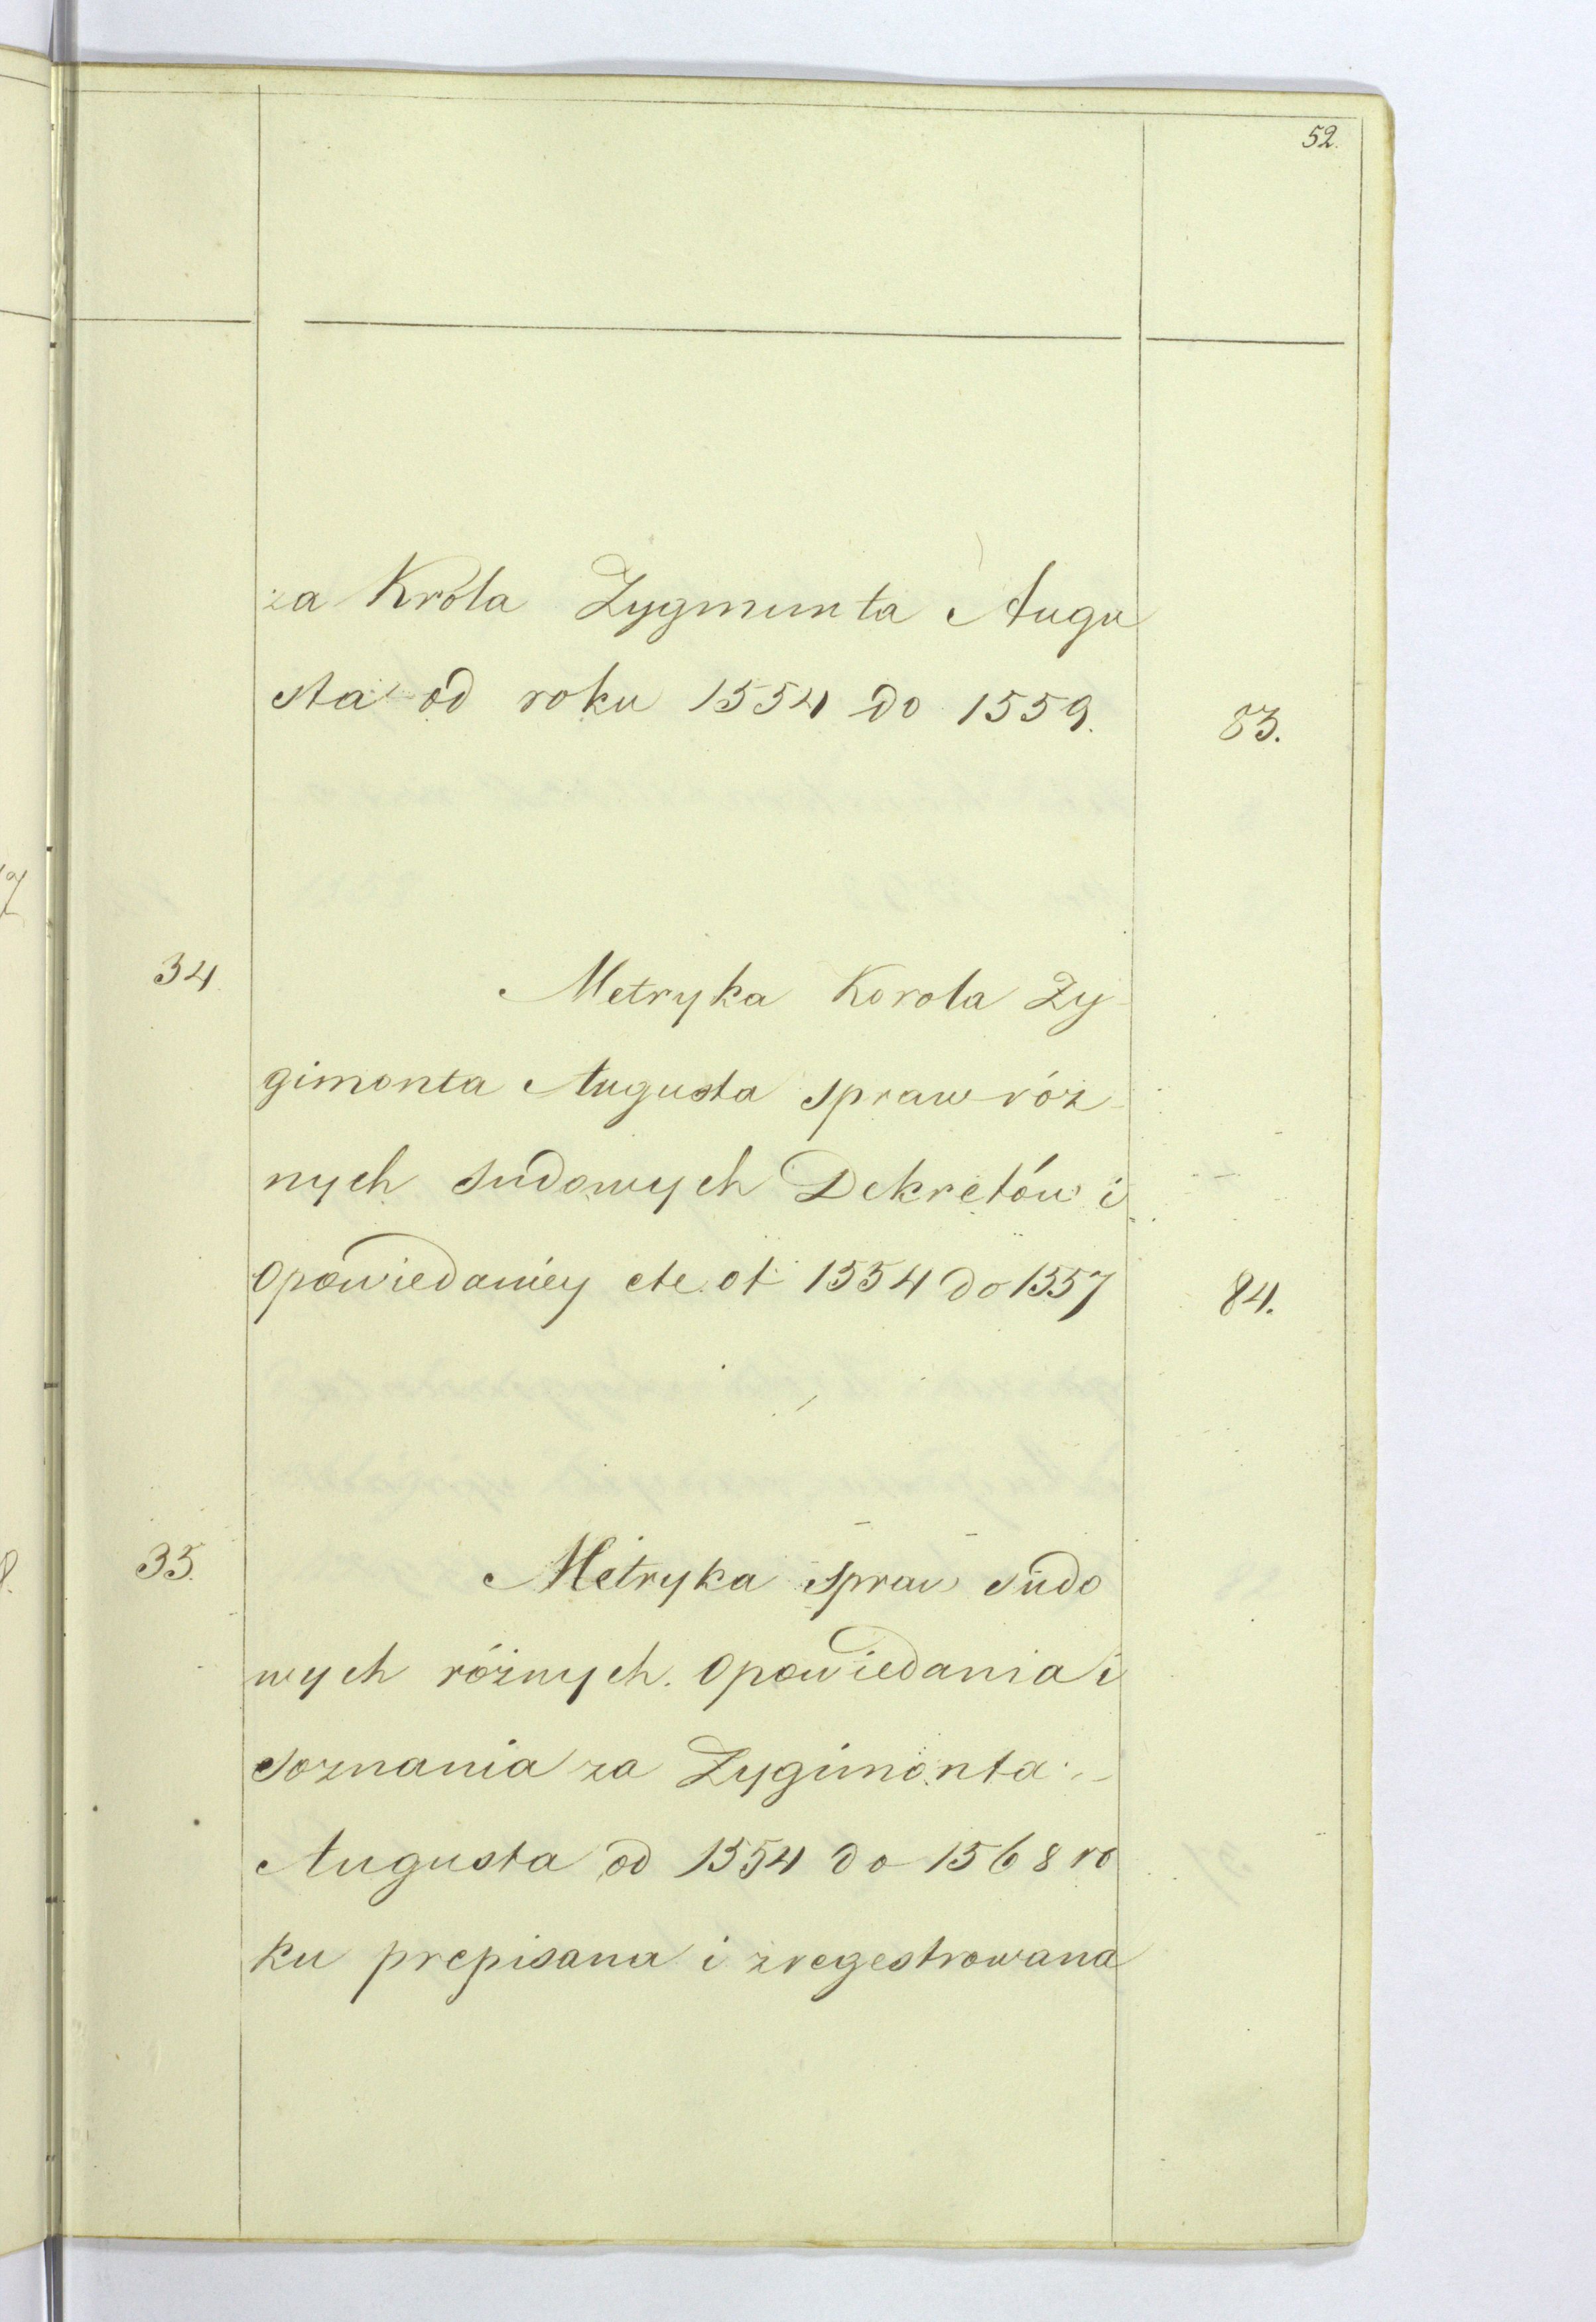 52.
za Króla Zygmunta Augu
sta od roku 1554 do 1559. 83.
34. Metryka Korola Zy-
gimonta Augusta spraw róż-
nych sudowych Dekretów i
Opowiedaniey etc. ot 1554 do 1557 84.
35. Metryka spraw sudo
wych różnych. Opowiedania i
soznania za Zygimonta
Augusta od 1554 do 1568 ro
ku prepisana i zregestrowana